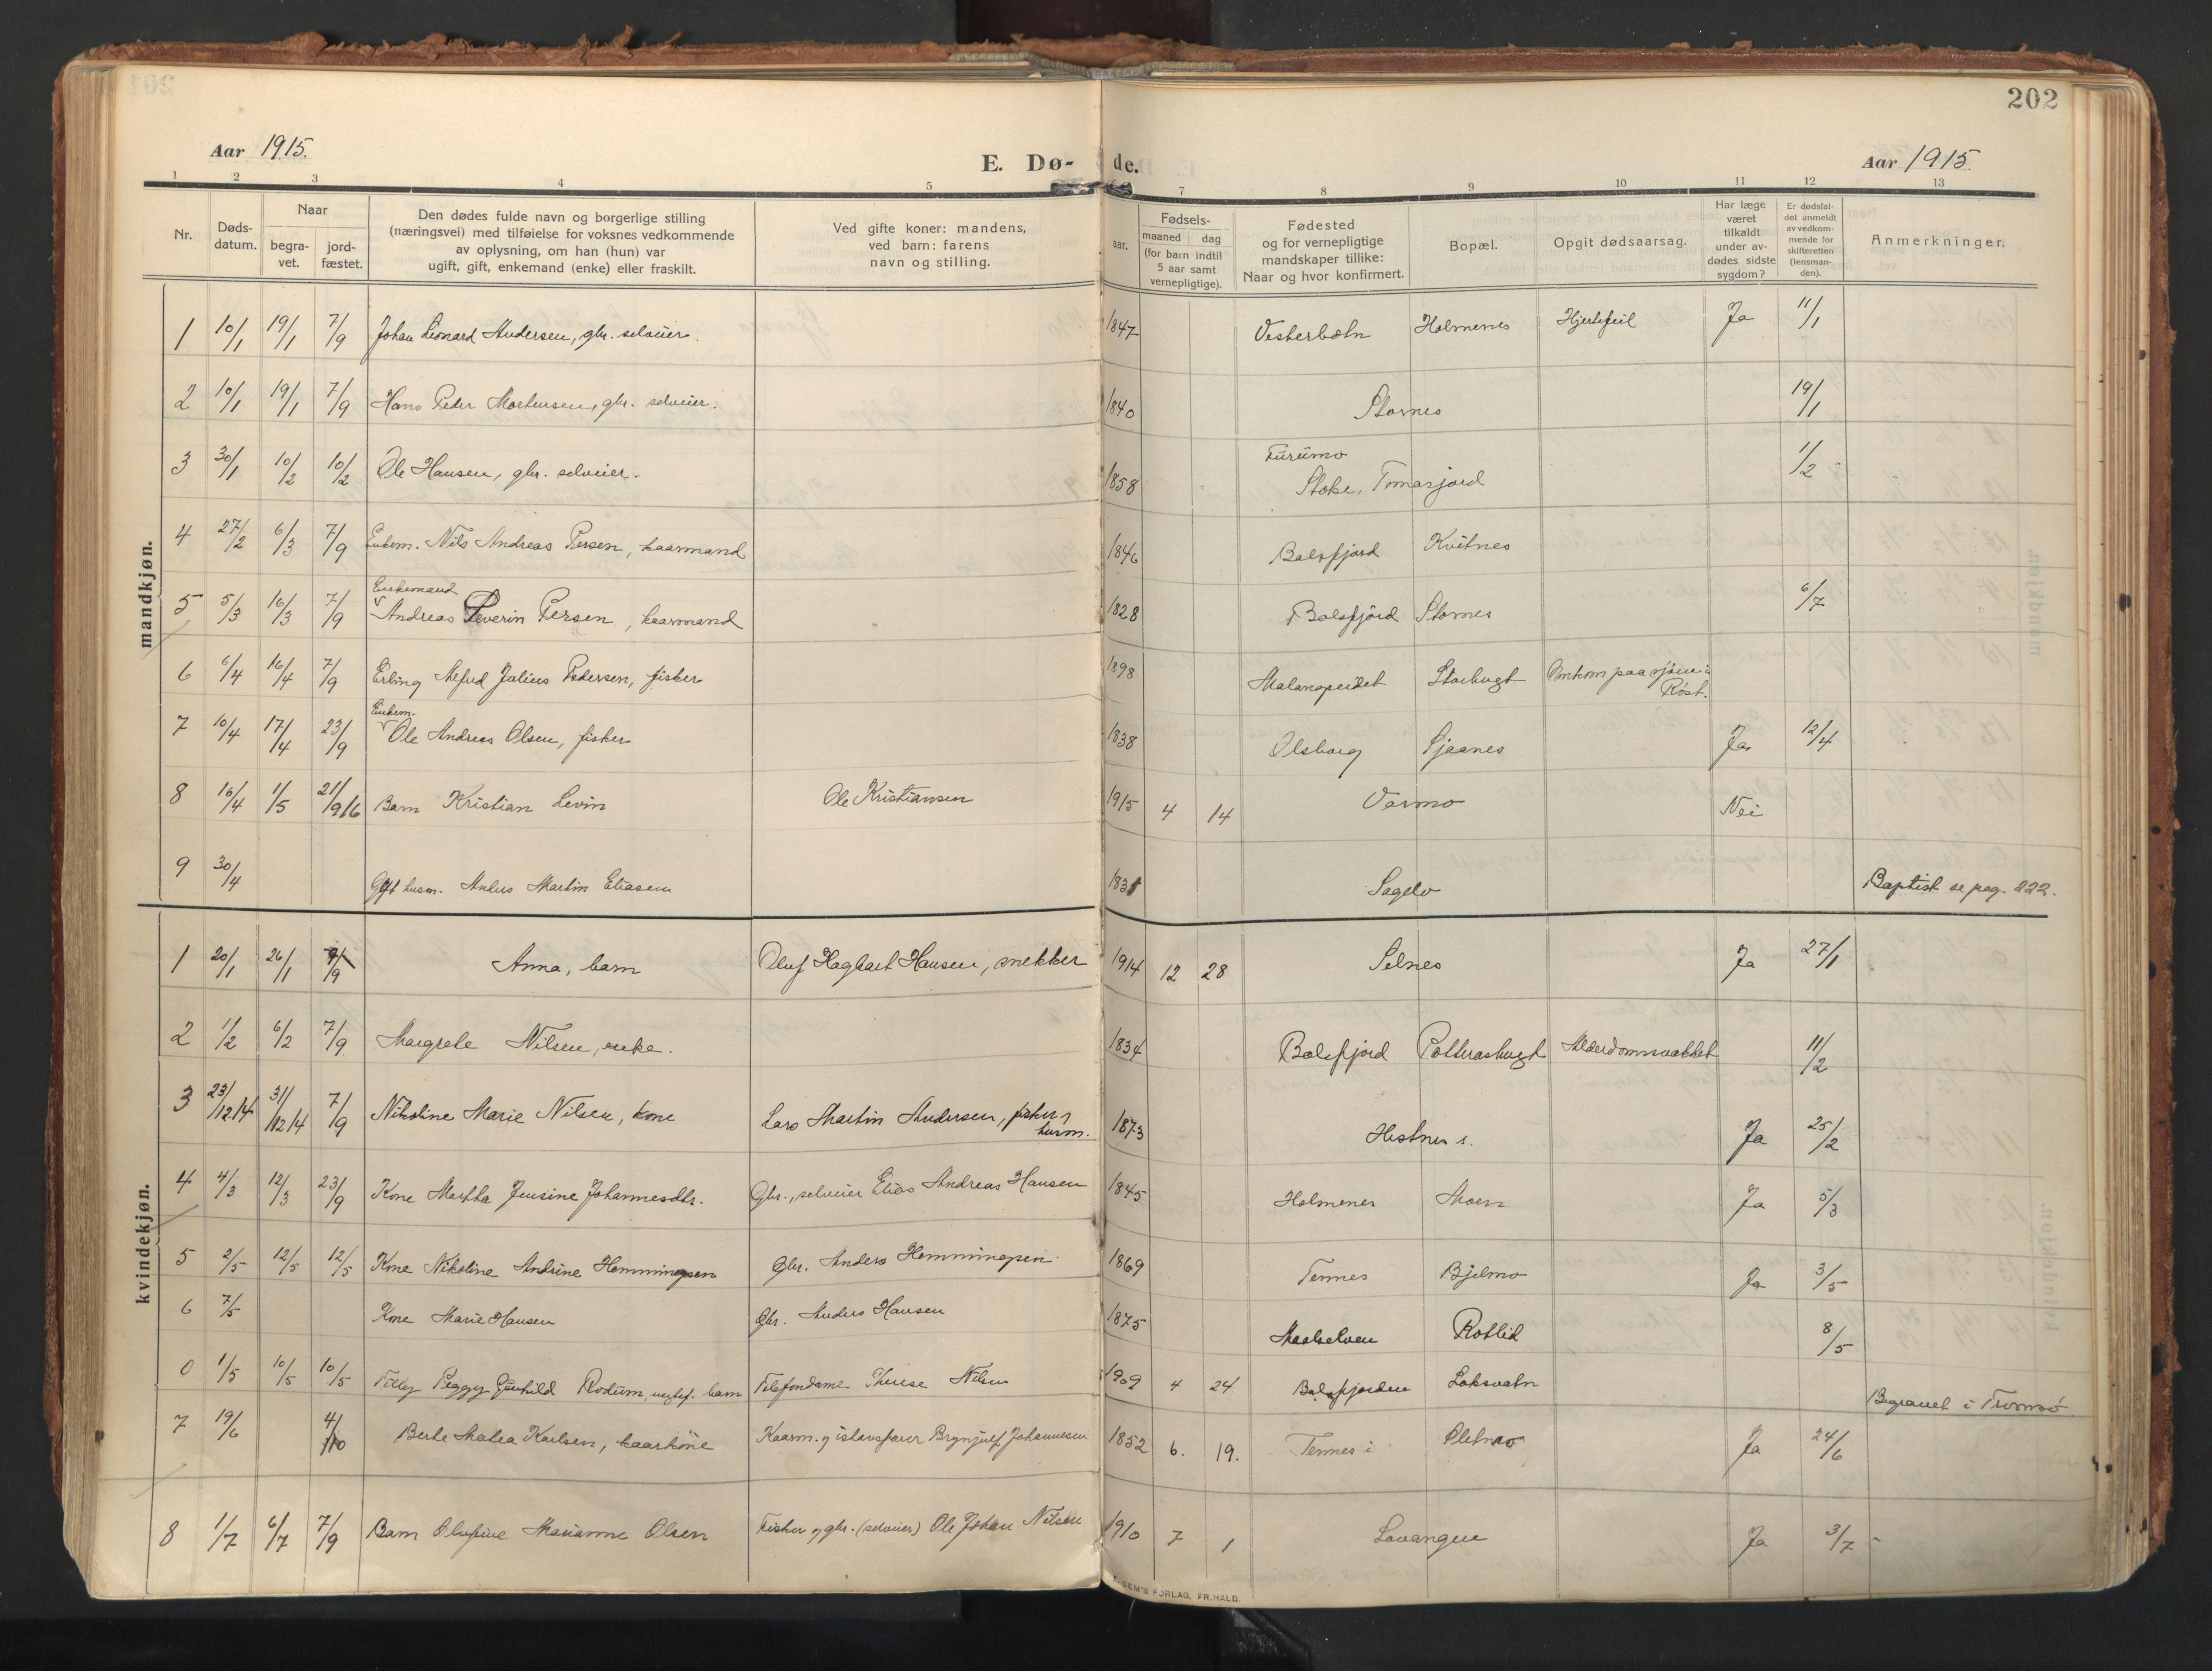 202
Aar 1915.
E. Dø-
de.
Aar 1915.
1 2 3 4 5 7 8 9 10 11 12 13
Nr.
Døds-
datum.
Naar
begra-
vet.
jord-
fæstet.
Den dødes fulde navn og borgerlige stilling
(næringsvei) med tilføielse for voksnes vedkommende
av oplysning, om han (hun) var
ugift, gift, enkemand (enke) eller fraskilt.
Ved gifte koner: mandens,
ved barn: farens
navn og stilling.
aar.
Fødsels-
maaned dag
(for barn indtil
5 aar samt
vernepligtige).
Fødested
og for vernepligtige
mandskaper tillike:
Naar og hvor konfirmert.
Bopæl.
Opgit dødsaarsag.
Har læge
været
tilkaldt
under av-
dødes sidste
sygdom?
Er dødsfal-
det anmeldt
av vedkom-
mende for
skifteretten
(lensman-
den).
Anmerkninger.
mandkjøn.
1 10/1 19/1 7/9 Johan Leonard Andersen, gbr. selveier. 1847 Vesterbotn Holmenes Hjertefeil Ja 11/1
2 10/1 19/1 7/9 Hans Peder Mortensen, gbr. selveier. 1840 Stornes 19/1
3 30/1 10/2 10/2 Ole Hansen, gbr. selveier. 1858 Furumo
Tomasjord 1/2
4 27/2 6/3 7/9 Enkem. Nils Andreas Persen, kaarmand 1846 Balsfjord Kvitnes
Enkemand
5 5/3 16/3 7/9 Andreas Severin Persen, kaarmand 1828 Balsfjord Stornes 6/7
6 6/4 16/4 7/9 Erling Alfred Julius Pedersen, fisker 1898 Malangseidet Storbugt Omkom paa sjøen i
Røst.
Enkem.
7 10/4 17/4 23/9 Ole Andreas Olsen, fisker 1838 Olsborg Sjaanes Ja 12/4
8 16/4 1/5 21/9 16 Barn Kristian Levin Ole Kristiansen 1915 4 14 Varmo Nei
9 30/4 Gift husm. Anders Martin Eliasen Sagelv Baptist se pag. 222.
kvindekjøn.
1 20/1 26/1 7/9 Anna, barn Oluf Hagbart Hansen, snekker 1914 12 28 Selnes Ja 27/1
2 1/2 6/2 7/9 Margrete Nilsen, enke. 1834 Balsfjord Pollerasbugt Alderdomssvakhet 11/2
3 23/12 14 31/12 14 7/9 Nikoline Marie Nilsen, kone Lars Martin Andersen, fisker,
husm. 1873 Hestnes Ja 25/2
4 4/3 12/3 23/9 Kone Martha Jensine Johannesdtr. Gbr., selveier Elias Andreas Hansen 1845 Holmenes Moen Ja 5/3
5 2/5 12/5 12/5 Kone Nikoline Andrine Hemmingsen Gbr. Anders Hemmingsen 1869 Tennes Bjelmo Ja 3/5
6 7/5 Kone Marie Hansen Gbr. Anders Hansen 1875 Maalselven Rotlid 8/5
0 1/5 10/5 10/5 Peggy Gunhild Rodum, uegtef. barn Telefondame Therese Nilsen 1909 4 24 Balsfjorden Laksvatn Begravet i Tromsø
7 19/6 4/10 Berte Malea Karlsen, kaarkone Kaarm. og ishavsfarer Brynjulf Johannesen 1852 6. 19. Tennes i Sletmo Ja 24/6
8 1/7 6/7 7/9 Barn Olufine Marianne Olsen Fisker og gbr. (selveier) Ole Johan Nilsen 1910 7 1 Lavangen Ja 3/7
FORLAG, FR.HALD.